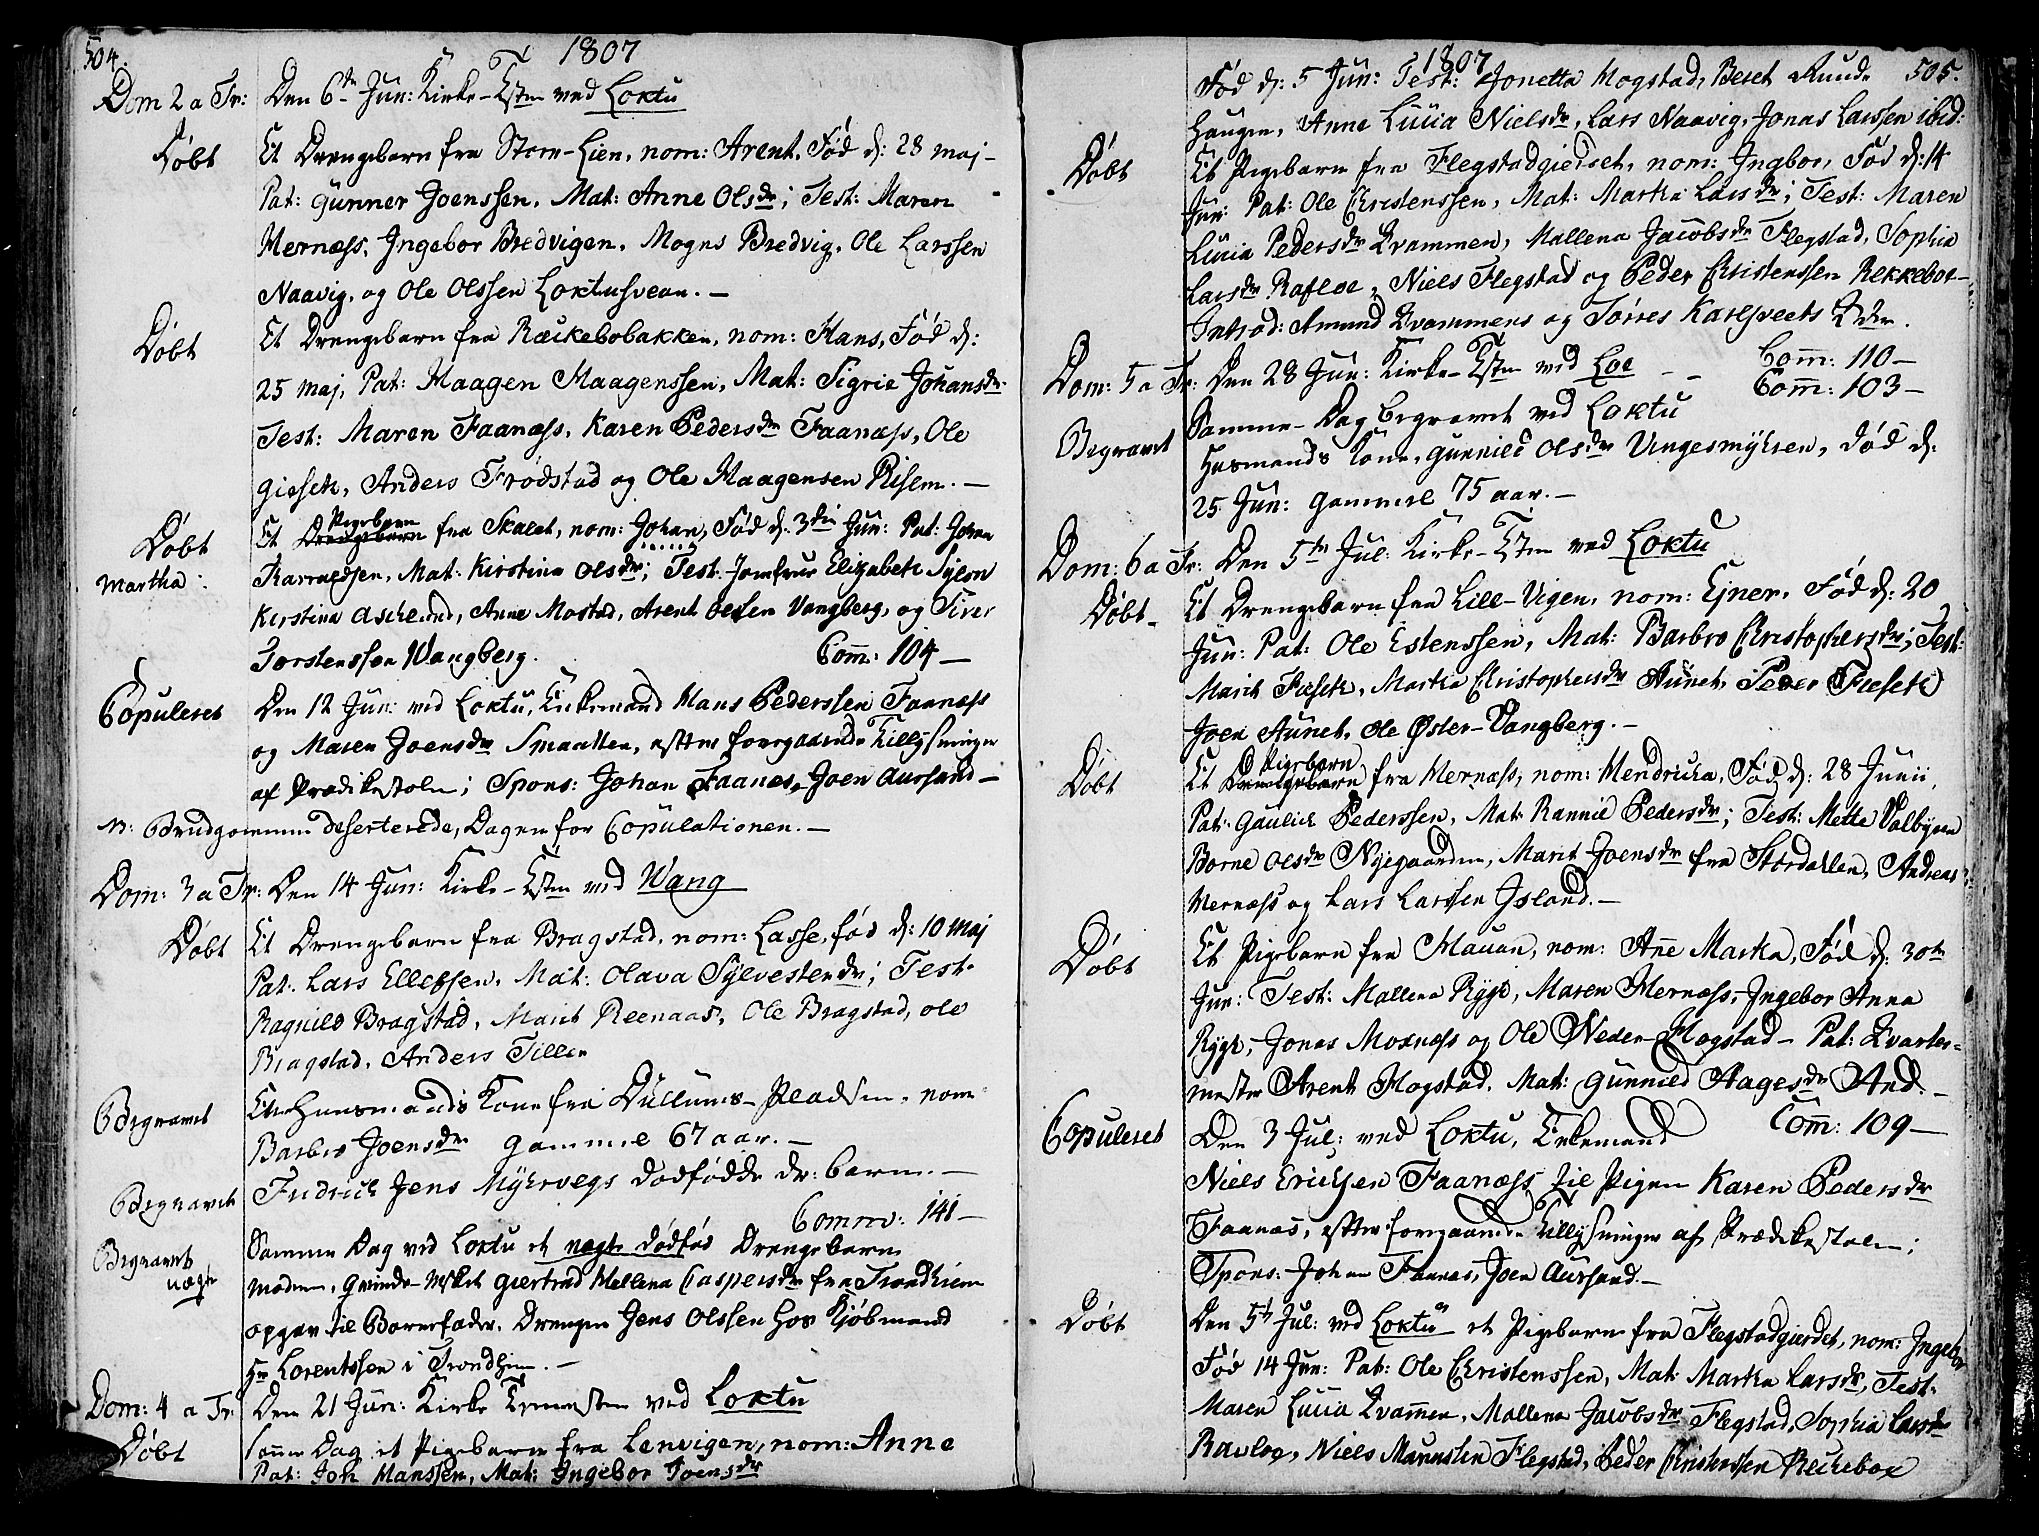 504.
1807
Dom 2 a Tr: Den 6te Jun: Kirke-Tstn ved Loktu
Døbt Et Drengebarn fra Storm-Lien, nom: Arent, Fød d: 28 maj-
Pat: Gunner Joenssen, Mat: Anne Olsdr; Test: Maren
Mernæss, Ingebor Bredvigen, Mogns Bredvig, Ole Larssen
Naavig, og Ole Olssen Loktusvean. -
Døbt Et Drengebarn fra Ræckebobakken, nom: Hans, Fød d:
25 maj, Pat: Haagen Haagenssen, Mat: Sigrie Johansdr
Test: Maren Faanæss, Karen Pedersdr Faanæss, Ole
Gieseth, Anders Frødstad og Ole Haagensen Risem. -
Døbt Et Pigebarn fra Skalet, nom: Johan, Fød d. 3die Jun: Pat: Johan
Martha: Mat: Kirstina Olsdr; Test: Jomfrue Elizabeth
Kirstina Anne Mostad, Arent Olssen Vangberg, og
Torstenssen Wangberg. Comm: 104 -
Copuleret Den 12 Jun: ved Loktu, Enkemand Hans Pederssen Faanæss
og Maren Joensdr Smaatten, efter foregaaende Tillysninger
af Prædikestolen; Spons: Johan Faanæs, Joen Aursand -
N: Brudgommen deserterede, Dagen for Copulationen. -
Dom: 3 a Tr: Den 14 Jun: Kirke-Tstn ved Wang
Døbt Et Drengebarn fra Bragstad, nom: Lasse, fød d: 10 maj
Pat: Lars Ellefssen, Mat: Olava Sylvestersdr; Test:
Ragnild Bragstad, Marit Reenaas, Ole Bragstad, ole
Bragstad, Anders Tiller
Begravet En Huusmands Kone fra Dullums-Pladsen, nom:
Barbro Joensdr gammel 67 aar. -
Begravet Fridrich Jens Myhrvegs dødfødde dr: barn. -
Comm: 141 -
Begravet Samme Dag ved Loktu et uægte dødfød Drengebarn
uægte moderen, Giertrud Mellena Caspersdr fra Trondhiem
opgav til Barnefader, Drengen Jens Olssen hos Kjøbmand
Hr Lorentssen i Trondhiem. -
Dom: 4 a Tr: Den 21 Jun: Kirke Tienesten ved Loktu
Døbt samme Dag et Pigebarn fra Lenvigen, nom: Anne
Pat: Joh Hanssen, Mat: Ingebor Joensdr
1807
505.
Fød d: 5 Jun: Test: Jonetta Mogstad, Beret Runde
Haugen, Anne Lucia Nielsdr, Lars Naavig, Jonas Larssen ibid:
Døbt Et Pigebarn fra Flegstadgierdet, nom: Ingbor, Fød d: 14
Jun: Pat: Ole Christenssen, Mat: Martha Larsdr; Test: Maren
Lucia Pedersdr Qvammen, Mallena Jacobsdr Flegstad, Sophia
Larsdr Rafloe, Niels Flegstad og Peder Christenssen Rekkeboe -
Introd: Amund Qvammens og Torres Karlsveets Qdr.
Comm: 110 -
Dom: 5 a Tr: Den 28 Jun: Kirke-Tstn ved Loe - - Comm: 103 -
Begravet Samme-Dag begravet ved Loktu
Husmands Kone, Gunnild Olsdr Ungesmyhren, død d:
25 Jun: gammel 75 aar. -
Dom: 6 a Tr: Den 5te Jul: Kirke-Tstn ved Loktu
Døbt Et Drengebarn fra Lill-Vigen, nom: Ejner, Fød d: 20
Jun: Pat: Ole Estenssen, Mat: Barbro Christophersdr; Test:
Marit Fieseth, Martha Christophersdr Aunet, Peder Fieseth
Joen Aunet, Ole Øster-Vangberg. -
Døbt Et Pigebarn fra Mernæss, nom: Hendricka, Fød d: 28 Junii,
Pat: Gaulich Pederssen, Mat: Rannie Pedersdr; Test: Mette
Olsdr Nygaarden, Marit Joensdr fra Stordallen, Andreas
Mernæss og Lars Larssen Island. -
Døbt Et Pigebarn fra Hauan, nom: Anne Martha, Fød d: 30te
Jun: Test: Mallena Rygh, Maren Mernæss, Ingebor Anna
Rygh, Jonas Moxnæss og Ole Neder-Mogstad - Pat: Qvarteer-
mester Arent Hogstad, Mat: Gunnild Aagesdr Aad. -
Comm: 109 -
Copuleret Den 3 Jul: ved Loktu, Enkemand
Niels Erichsen Faanæss til Pigen Karen Pedersdr
Faanæs, efter foregaaende Tillysninger af Prædikestolen;
Spons: Johan Faanæs, Joen Aursand. -
Døbt Den 5te Jul: ved Loktu et Pigebarn fra Flegstadgierdet, nom: Ingebor
Fød 14 Jun: Pat: Ole Christenssen, Mat: Martha Larsdr, Test:
Maren Lucia Qvammen, Mallena Jacobsdr Flegstad, Sophia Larsdr
Ravloe, Niels Flegstad, Peder Christenssen Reckeboe